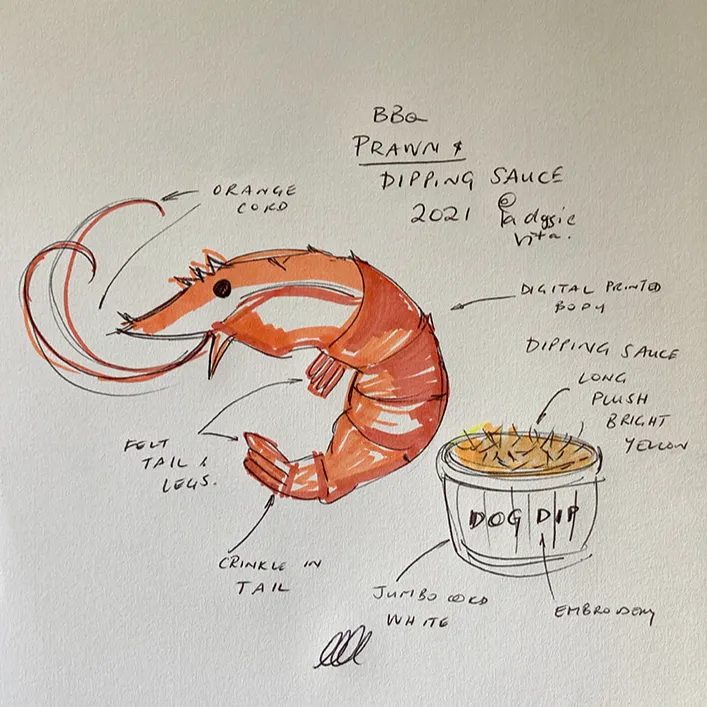 BBQ
PRAWN &
DIPPING SAUCE
2021 ©
vita.
ORANGE
CORD
DIGITAL PRINTED
BODY
DIPPING SAUCE
LONG
PLUSH
BRIGHT
YELLOW
FELT
TAIL &
LEGS.
DOG DIP
CRINKLE IN
TAIL
JUMBO CORD
WHITE
EMBROIDERY